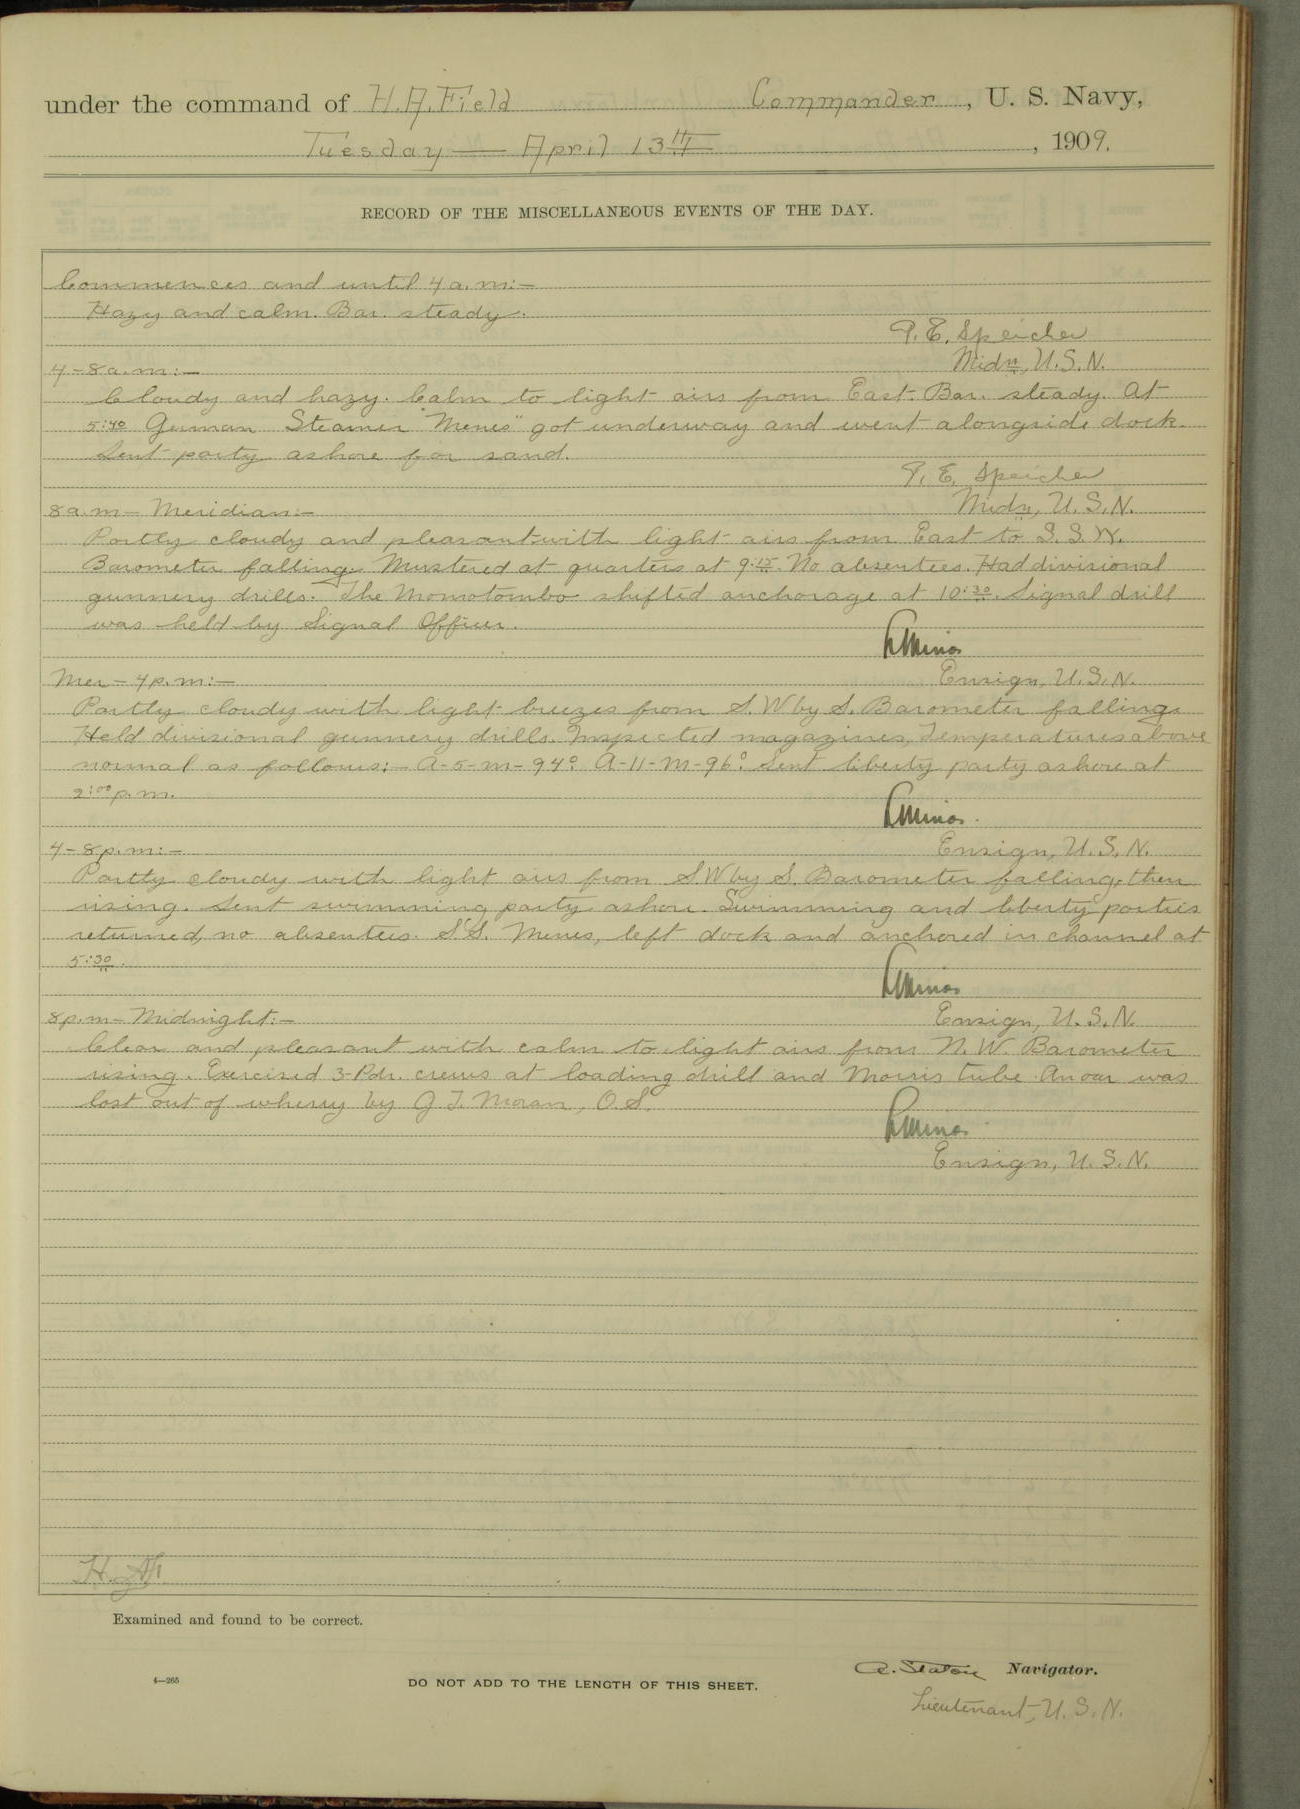 under the command of H.A. Field Commander, U. S. Navy,
Tuesday — April 13th, 1909.
RECORD OF THE MISCELLANEOUS EVENTS OF THE DAY.
Commences and until 4 a.m:-
Hazy and calm. Bar. steady.
P. E. Speicher
4-8 a.m:-
Midn, U.S.N.
Cloudy and hazy. Calm to light airs from East. Bar. steady. At
5:40 German Steamer "Menes" got underway and went alongside dock.
Sent party ashore for sand.
P. E. Speicher
8 a.m - Meridian:-
Midn, U.S.N.
Partly cloudy and pleasant with light airs from East to S.S.W.
Barometer falling. Mustered at quarters at 9:15. No absentees. Had divisional
gunnery drills. The Momotombo shifted anchorage at 10:30. Signal drill
was held by Signal Officer.
Mer - 4 p.m:-
Ensign, U.S.N.
Partly cloudy with light breezes from S.W by S. Barometer falling.
Held divisional gunnery drills. Inspected magazines, Temperatures above
normal as follows:- A-5-M-94° A-11-M-96°. Sent liberty party ashore at
2:00 p.m.
4-8 p.m:-
Ensign, U.S.N.
Partly cloudy with light airs from S.W by S. Barometer falling, then
rising. Sent swimming party ashore. Swimming and liberty parties
returned, no absentees. S.S. Menes, left dock and anchored in channel at
5:30.
8 p.m - Midnight:-
Ensign, U.S.N.
Clear and pleasant with calm to light airs from N.W. Barometer
rising. Exercised 3-Pdr. crews at loading drill and Morris tube. An oar was
lost out of wherry by J T. Moran, O.S.
Ensign, U.S.N.
Examined and found to be correct.
A. Staton Navigator.
4—265
DO NOT ADD TO THE LENGTH OF THIS SHEET.
Lieutenant, U.S.N.